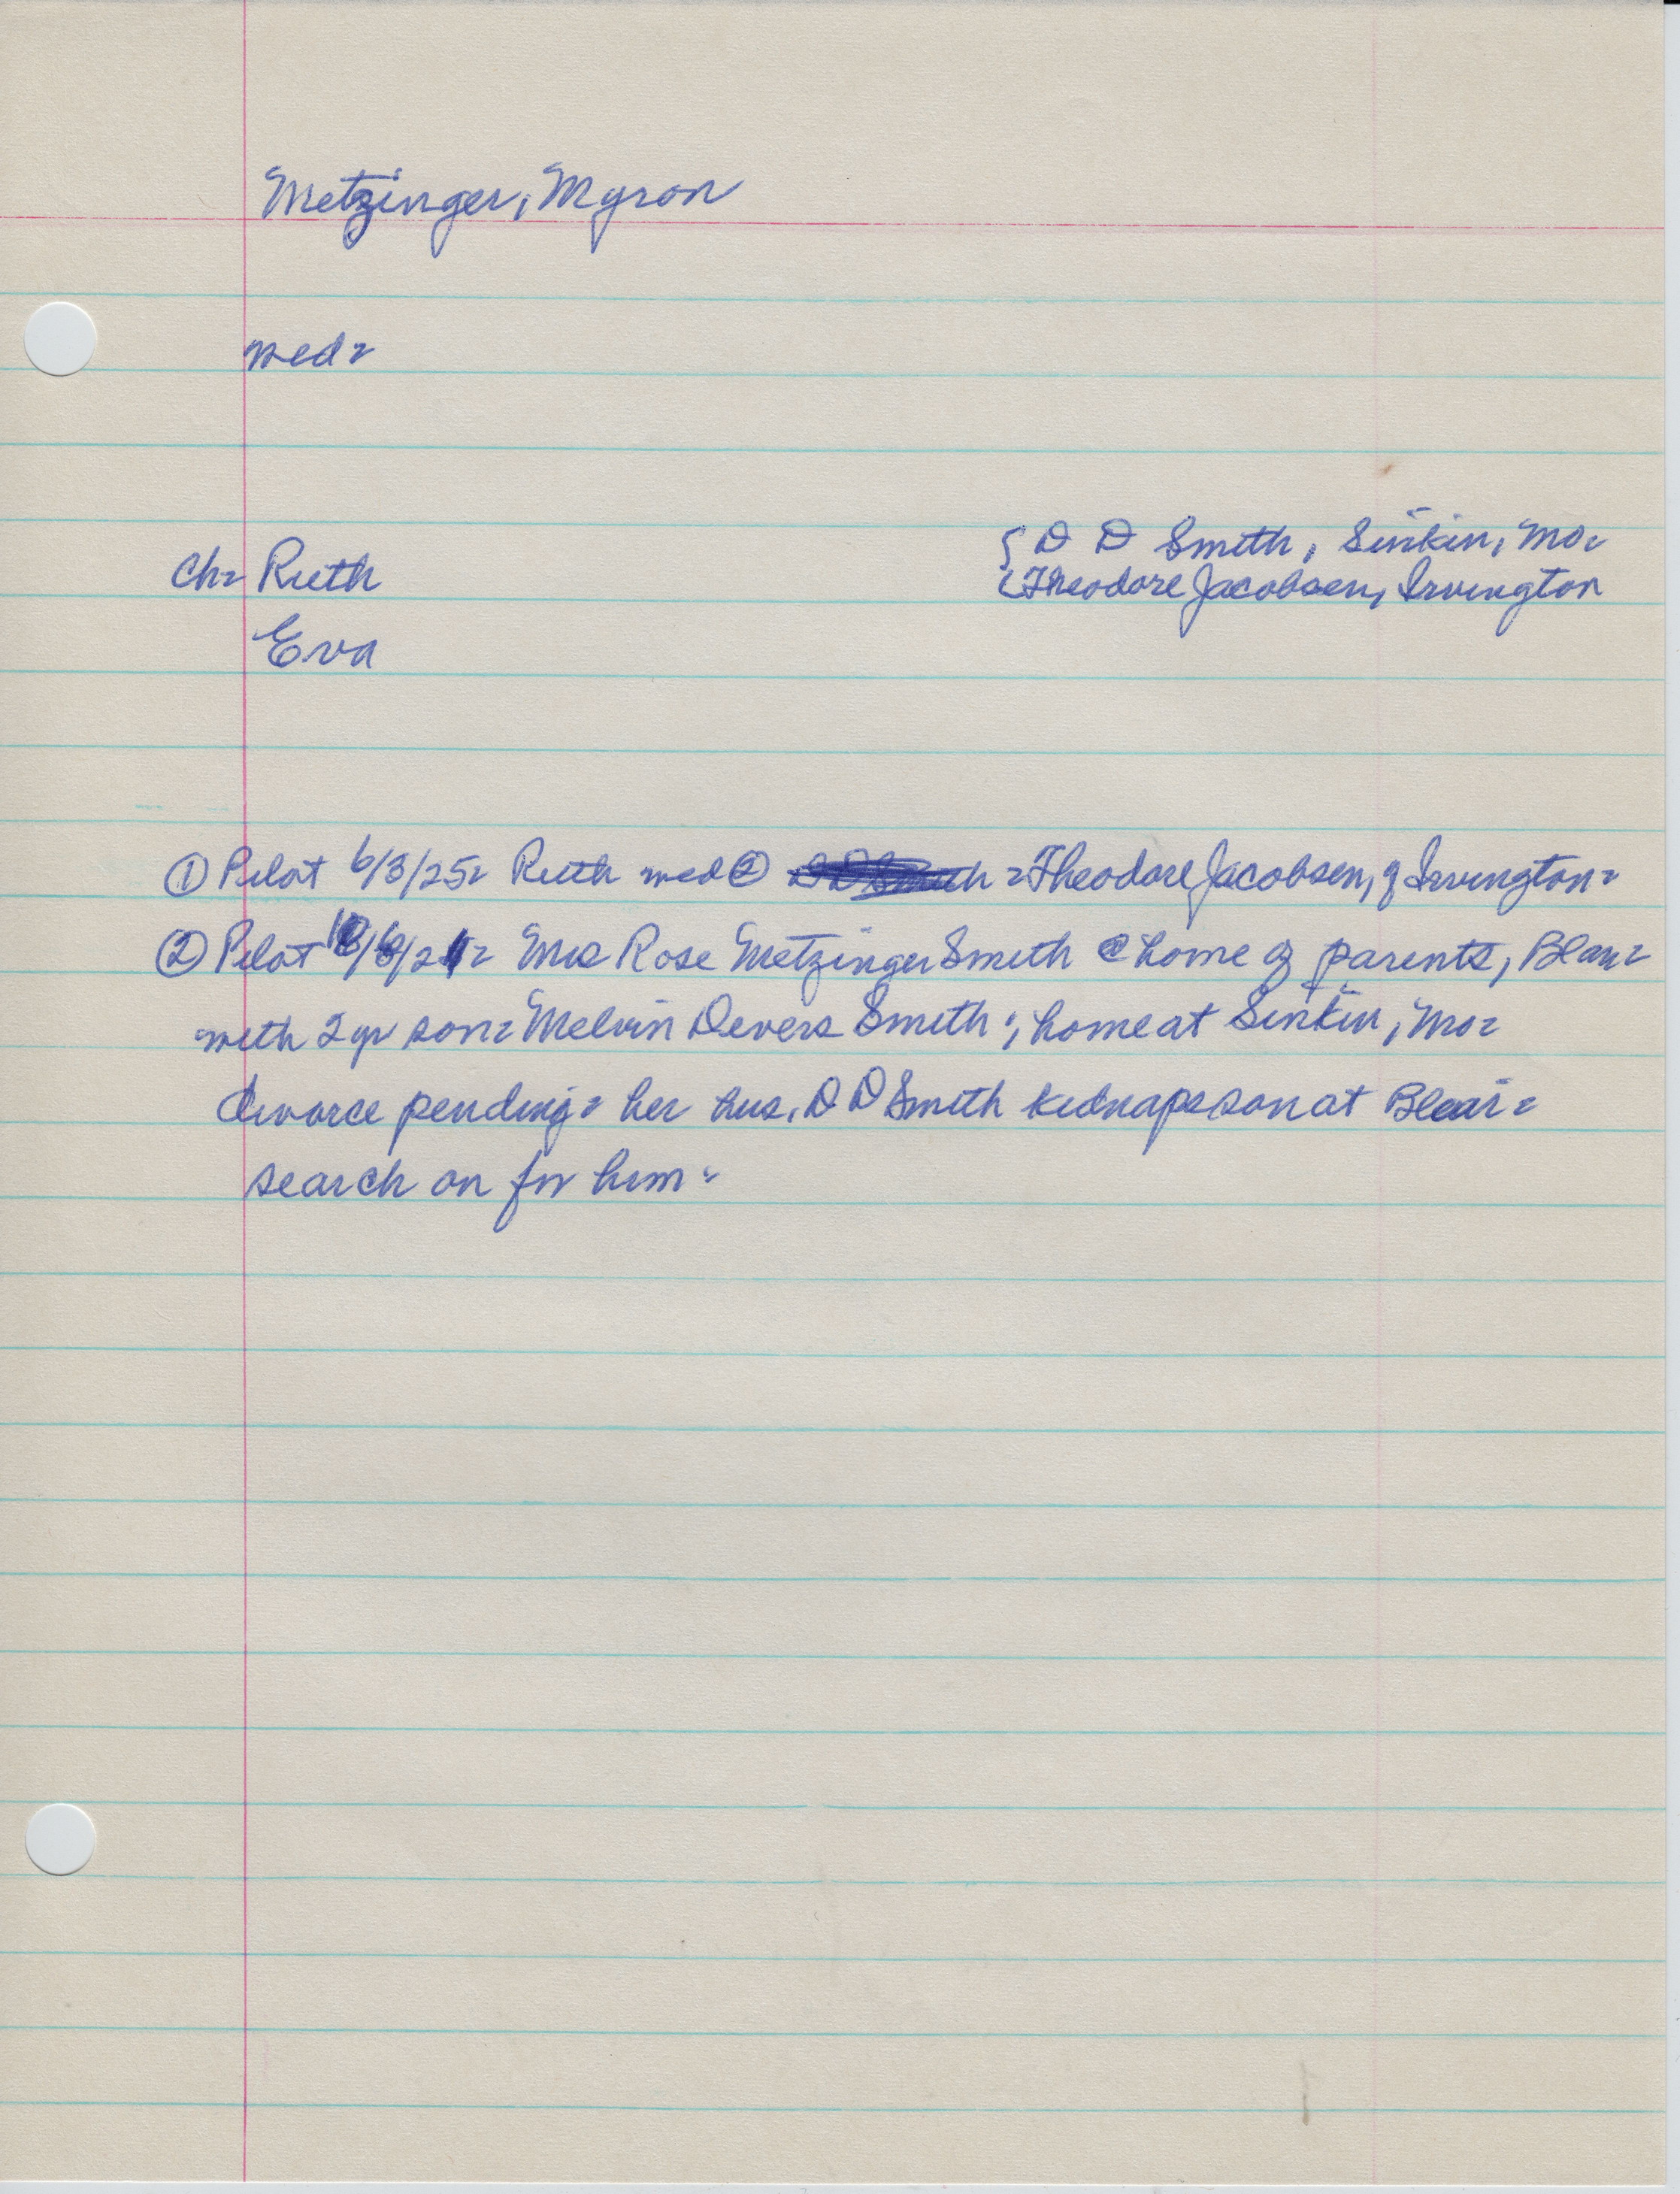 Metzinger, Myron
med=
D D Smith, Sinkin, Mo=
Ch= Ruth
Theodore Jacobsen, Irvington
Eva
① Pilot 6/3/25= Ruth med ② =Theodore Jacobsen, of Irvington=
② Pilot = Mrs Rose Metzinger Smith @ home of parents, Blair=
with 2 yr son= Melvin Devers Smith; home at Sinkin, Mo=
divorce pending= her hus. D D Smith kidnaps son at Blair=
search on for him=